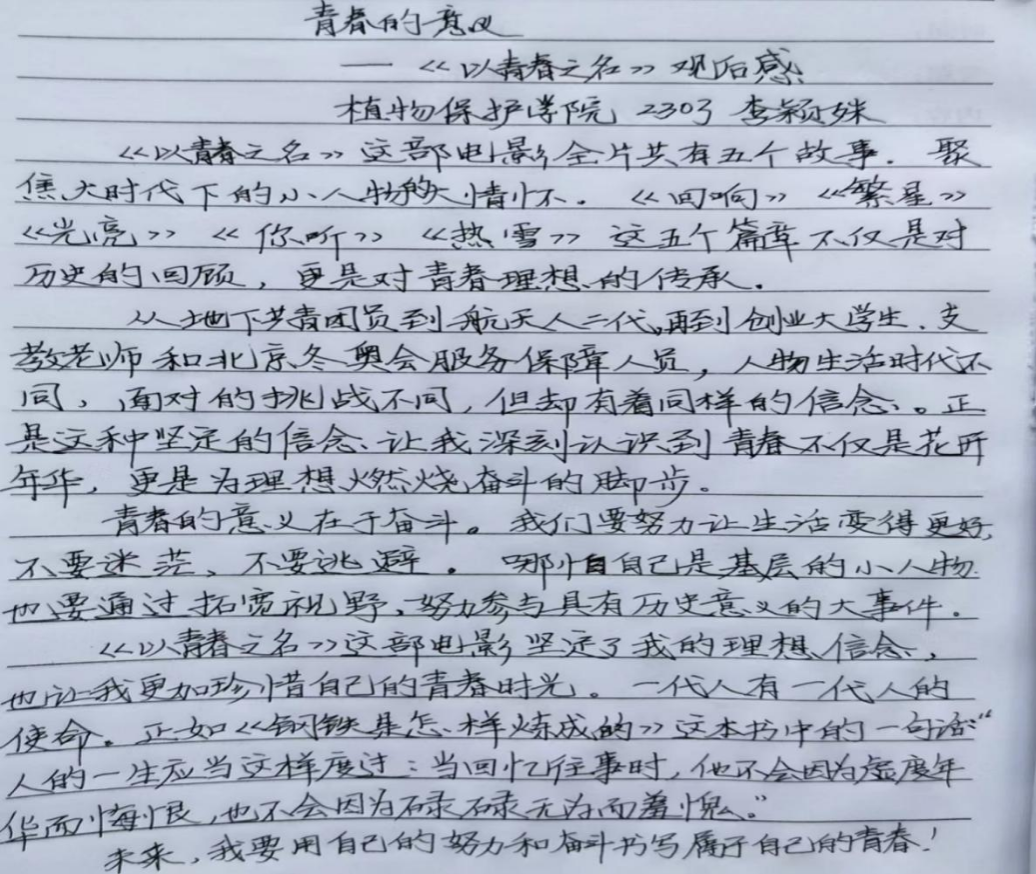 青春的意义
— 《以青春之名》观后感
植物保护学院 2303 李颖姝
《以青春之名》这部电影全片共有五个故事. 聚
焦大时代下的小人物的大情怀. 《回响》《繁星》
《光亮》《你听》《热雪》这五个篇章不仅是对
历史的回顾, 更是对青春理想的传承.
从地下共青团员到航天人二代,再到创业大学生、支
教老师和北京冬奥会服务保障人员, 人物生活时代不
同, 面对的挑战不同, 但却有着同样的信念、。正
是这种坚定的信念、让我深刻认识到青春不仅是花开
年华, 更是为理想燃烧奋斗的脚步。
青春的意义在于奋斗。我们要努力让生活变得更好,
不要迷茫、不要逃避. 哪怕自己是基层的小人物
也要通过拓宽视野、努力参与具有历史意义的大事件.
《以青春之名》这部电影坚定了我的理想信念,
也让我更加珍惜自己的青春时光。一代人有一代人的
使命. 正如《钢铁是怎样炼成的》这本书中的一句话“
人的一生应当这样度过：当回忆往事时, 他不会因为虚度年
华而悔恨, 也不会因为碌碌无为而羞愧。”
未来, 我要用自己的努力和奋斗书写属于自己的青春!